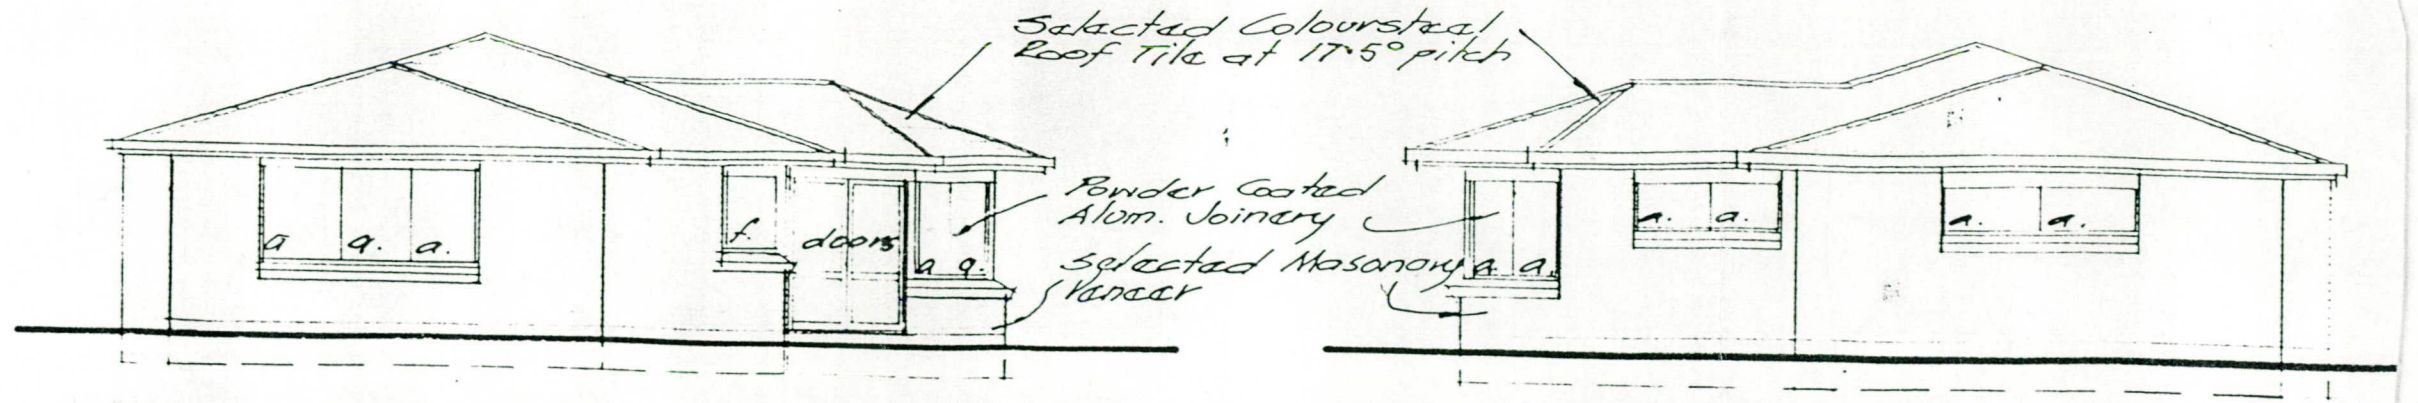 Selected Coloursteel
Roof Tile at 17.5° pitch
Powder Coated
Alum. Joinery
Selected Masonary
Veneer
a a. a.
f.
doors
a a.
a a.
a. a.
a. a.